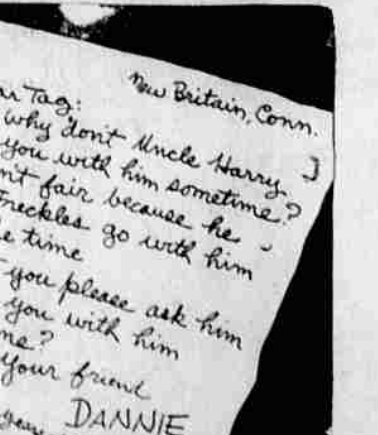 New Britain, Conn.
Tag:
why don't Uncle Harry
you with him sometime?
fair because he
Freckles go with him
time
you please ask him
you with him
Your friend
DANNIE